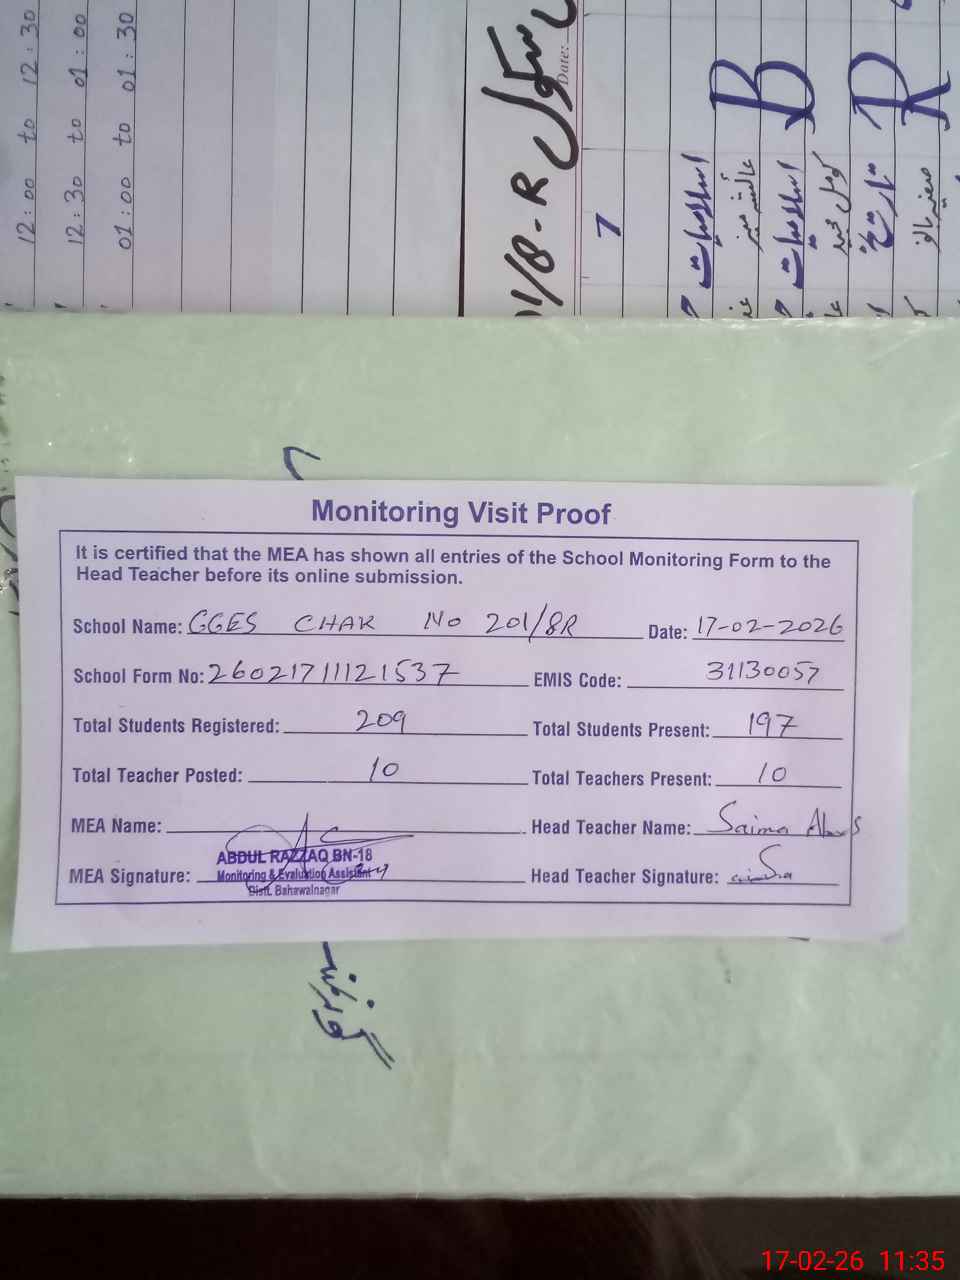 12:00 to 12:30
12:30 to 01:00
01:00 to 01:30
سکول
1/8-R
Date:
7
B
R
اسلامیات
عائشہ منیر
اسلامیات
کومل مجید
تاریخ
صفیہ بانو
Monitoring Visit Proof
It is certified that the MEA has shown all entries of the School Monitoring Form to the
Head Teacher before its online submission.
School Name: GGES CHAK No 201/8R Date: 17-02-2026
School Form No: 26021711121537 EMIS Code: 31130057
Total Students Registered: 209 Total Students Present: 197
Total Teacher Posted: 10 Total Teachers Present: 10
MEA Name: Head Teacher Name: Saima Abbas
ABDUL RAZZAQ BN-18
MEA Signature: Monitoring & Evaluation Assistant Head Teacher Signature: Saima
Distt. Bahawalnagar
گورنمنٹ
17-02-26 11:35